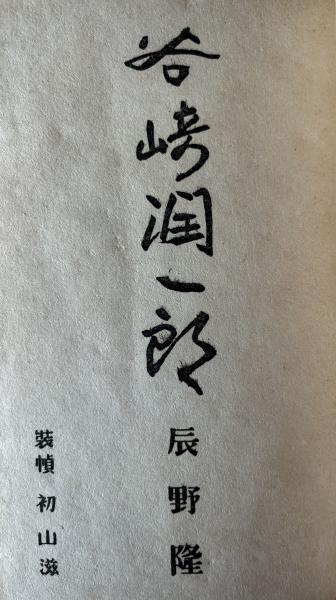 谷崎潤一郎
辰野隆
裝幀 初山滋